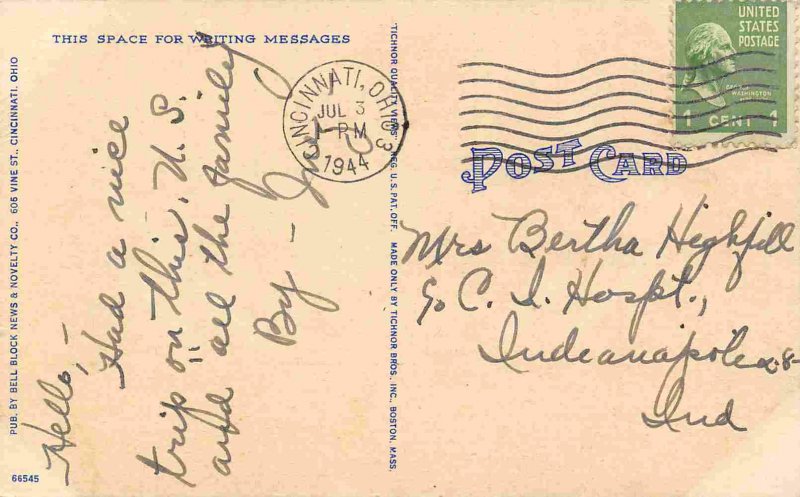 THIS SPACE FOR WRITING MESSAGES
Hello,-
Had a nice
trip on this. U.S.
and all the family
By -
PUB. BY BELL BLOCK NEWS & NOVELTY CO., 606 VINE ST., CINCINNATI, OHIO
66545
"TICHNOR QUALITY VIEWS," REG. U.S. PAT. OFF. MADE ONLY BY TICHNOR BROS., INC., BOSTON, MASS.
CINCINNATI, OHIO 3
JUL 3
1-PM
1944
UNITED
STATES
POSTAGE
GEORGE
WASHINGTON
1 CENT 1
POST CARD
Mrs Bertha Highfill
c/o C. I. Hospt.,
Indeanapoles-8-
Ind